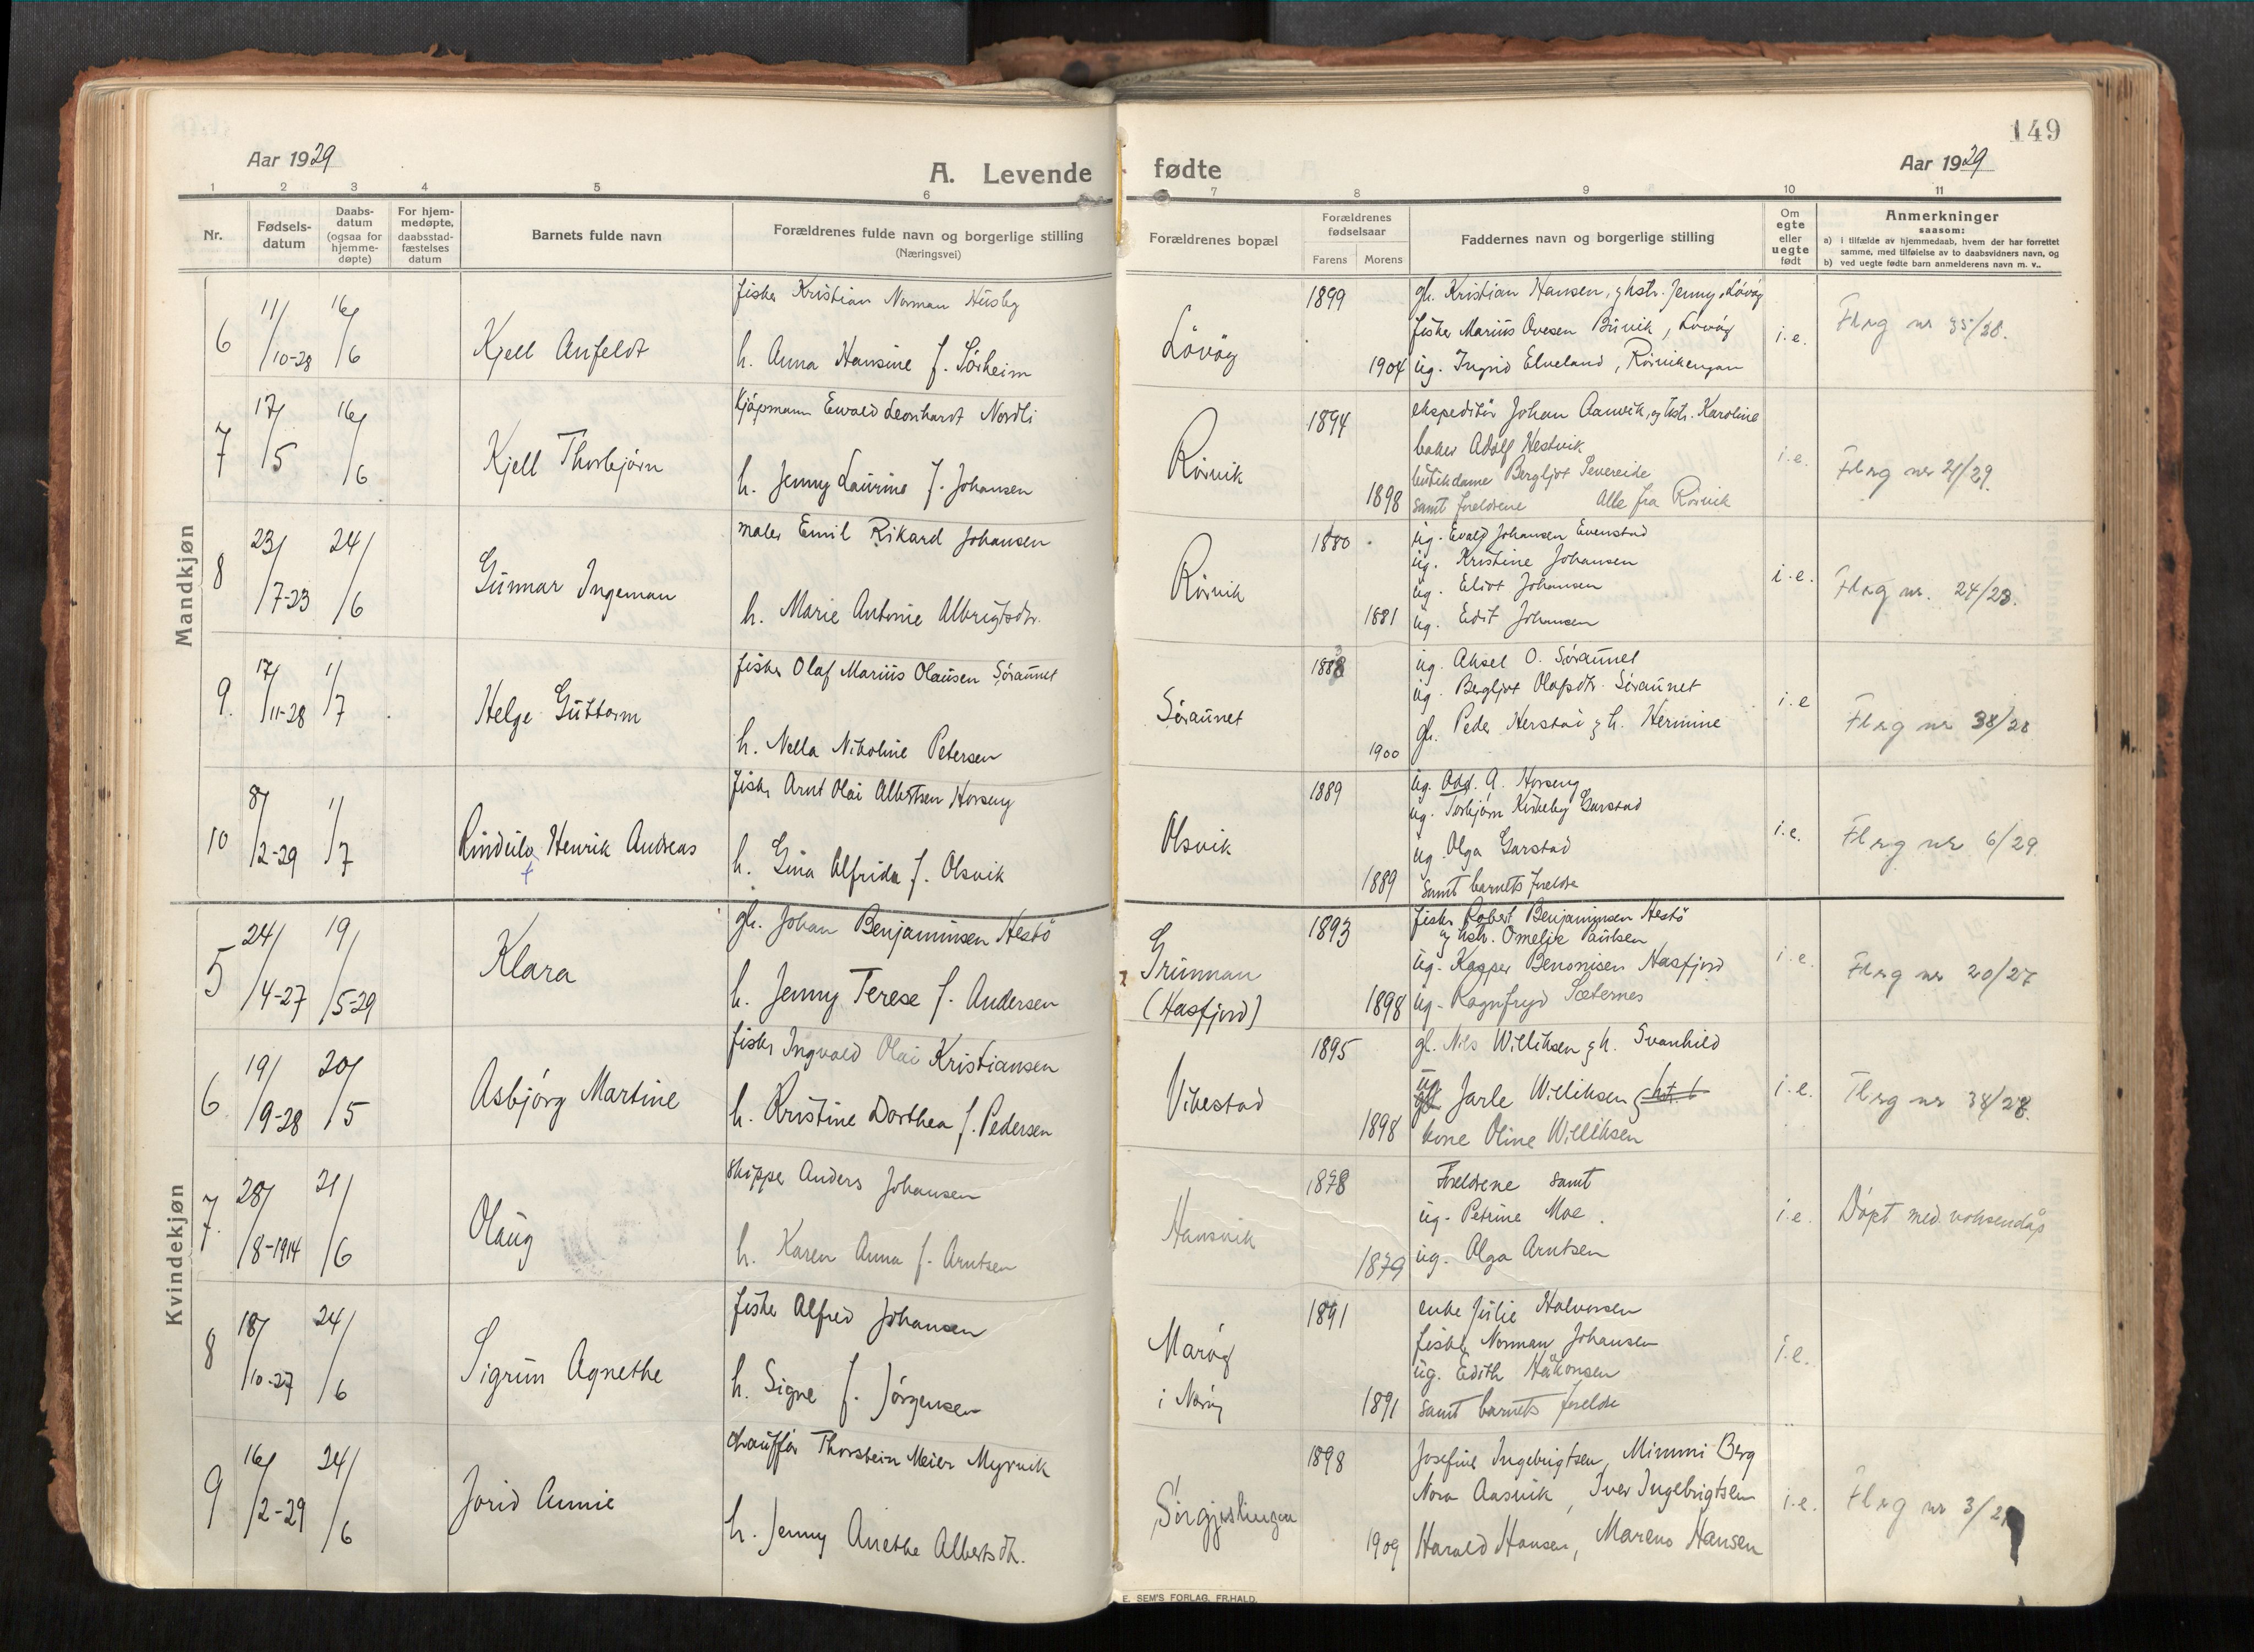 149
Aar 1929
A. Levende
fødte
Aar 1929
1 2 3 4 5 6 7 8 9 10 11
Nr.
Fødsels-
datum
Daabs-
datum
(ogsaa for
hjemme-
døpte)
For hjem-
medøpte,
daabsstad-
fæstelses
datum
Barnets fulde navn
Forældrenes fulde navn og borgerlige stilling
(Næringsvei)
Forældrenes bopæl
Forældrenes
fødselsaar
Farens Morens
Faddernes navn og borgerlige stilling
Om
egte
eller
uegte
født
Anmerkninger
saasom:
a) i tilfælde av hjemmedaab, hvem der har forrettet
samme, med tilføielse av to daabsvidners navn, og
b) ved uegte fødte barn anmelderens navn m. v..
Mandkjøn
6
11/10-28
16/6
Kjell Anfeldt
fisker Kristian Norman Husby
h. Anna Hansine f. Sørheim
Løvøy
1899
1904
gh. Kristian Hansen, g hstr. Jenny, Løvøy
fisker Marius Ovesen Buvik, Løvøy
ug. Ingrid Elveland, Rørvikengan
i.e.
Fl rg nr 35/28.
7
17/5
16/6
Kjell Thorbjørn
Kjøpmann Ewald Leonhardt Nordli
h. Jenny Laurine f. Johansen
Rørvik
1894
1898
ekspeditør Johan Aanvik, og hstr. Karoline
baker Adolf Hestvik
butikdame Bergljot Severeide
samt foreldrene Alle fra Rørvik
i.e.
Fl rg nr 21/29.
8
23/7-23
24/6
Gunnar Ingeman
maler Emil Rikard Johansen
h. Marie Antonie Albrigtsdtr.
Rørvik
1880
1881
ug. Evald Johansen Evenstad
ug. Kristine Johansen
ug. Eliot Johansen
ug. Edit Johansen
i.e.
Fl rg nr. 24/23.
9.
17/11-28
1/7
Helge Guttorm
fisker Olaf Marius Olausen Søraunet
h. Nella Nikoline Petersen
Søraunet
1900
ug. Aksel O. Søraunet
ug. Bergljot Olafsdtr. Søraunet
gh. Peder Herstai g h. Hermine
i.e
Fl rg nr 38/28
10
8/2-29
1/7
Henrik Andreas
fisker Arnt Olai Albertsen Horseng
h. Gina Alfrida f. Olsvik
Olsvik
1889
1889
ug. Odd. A. Horseng
ug. Torbjørn Kirkeby Garstad
ug. Olga Garstad
samt barnets foreldre
i.e.
Fl rg nr 6/29
Kvindekjøn
5
24/4-27
19/5-29
Klara
gh. Johan Benjaminsen Hestø
h. Jenny Terese f. Andersen
Grunnan
(Hasfjord)
1893
1898
fisker Robert Benjaminsen Hestø
og hstr. Omelje Paulsen
ug. Kasper Benonisen Hasfjord
ug. Ragnfryd Sæternes
i.e.
Fl rg nr 20/27
6
19/9-28
20/5
Asbjørg Martine
fisker Ingvald Olai Kristiansen
h. Kristine Dorthea f. Pedersen
Vikestad
1895
1898
gh. Nils Williksen g h. Svanhild
ug. Jarle Williksen
kone Oline Williksen
i.e.
Fl rg nr 34/28.
7.
28/8-1914
21/6
Olaug
skipper Anders Johansen
h. Karen Anna f. Arntsen
Hansvik
1878
1879
Foreldrene samt
ug. Petrine Moe.
ug. Olga Arntsen
i.e.
Døpt med voksendåp
8
18/10-27
24/6
Sigrun Agnethe
fisker Alfred Johansen
h. Signe f. Jørgensen
Marøy
i Nærøy
1891
1891
enke Julie Halvorsen
fisker Norman Johansen
ug. Edith Håkonsen
samt barnets foreldre
i.e.
9
16/2-29
24/6
Jorid Annie
chauffør Thorstein Meier Myrvik
h. Jenny Anethe Albertsdtr.
Sørgjæslingan
1898
1909
Josefine Ingebrigtsen, Mimmi Berg
Nora Aasvik, Iver Ingebrigtsen
Harald Hansen, Mareno Hansen
i.e.
Fl rg nr 3/29
E. SEM'S FORLAG, FR.HALD.